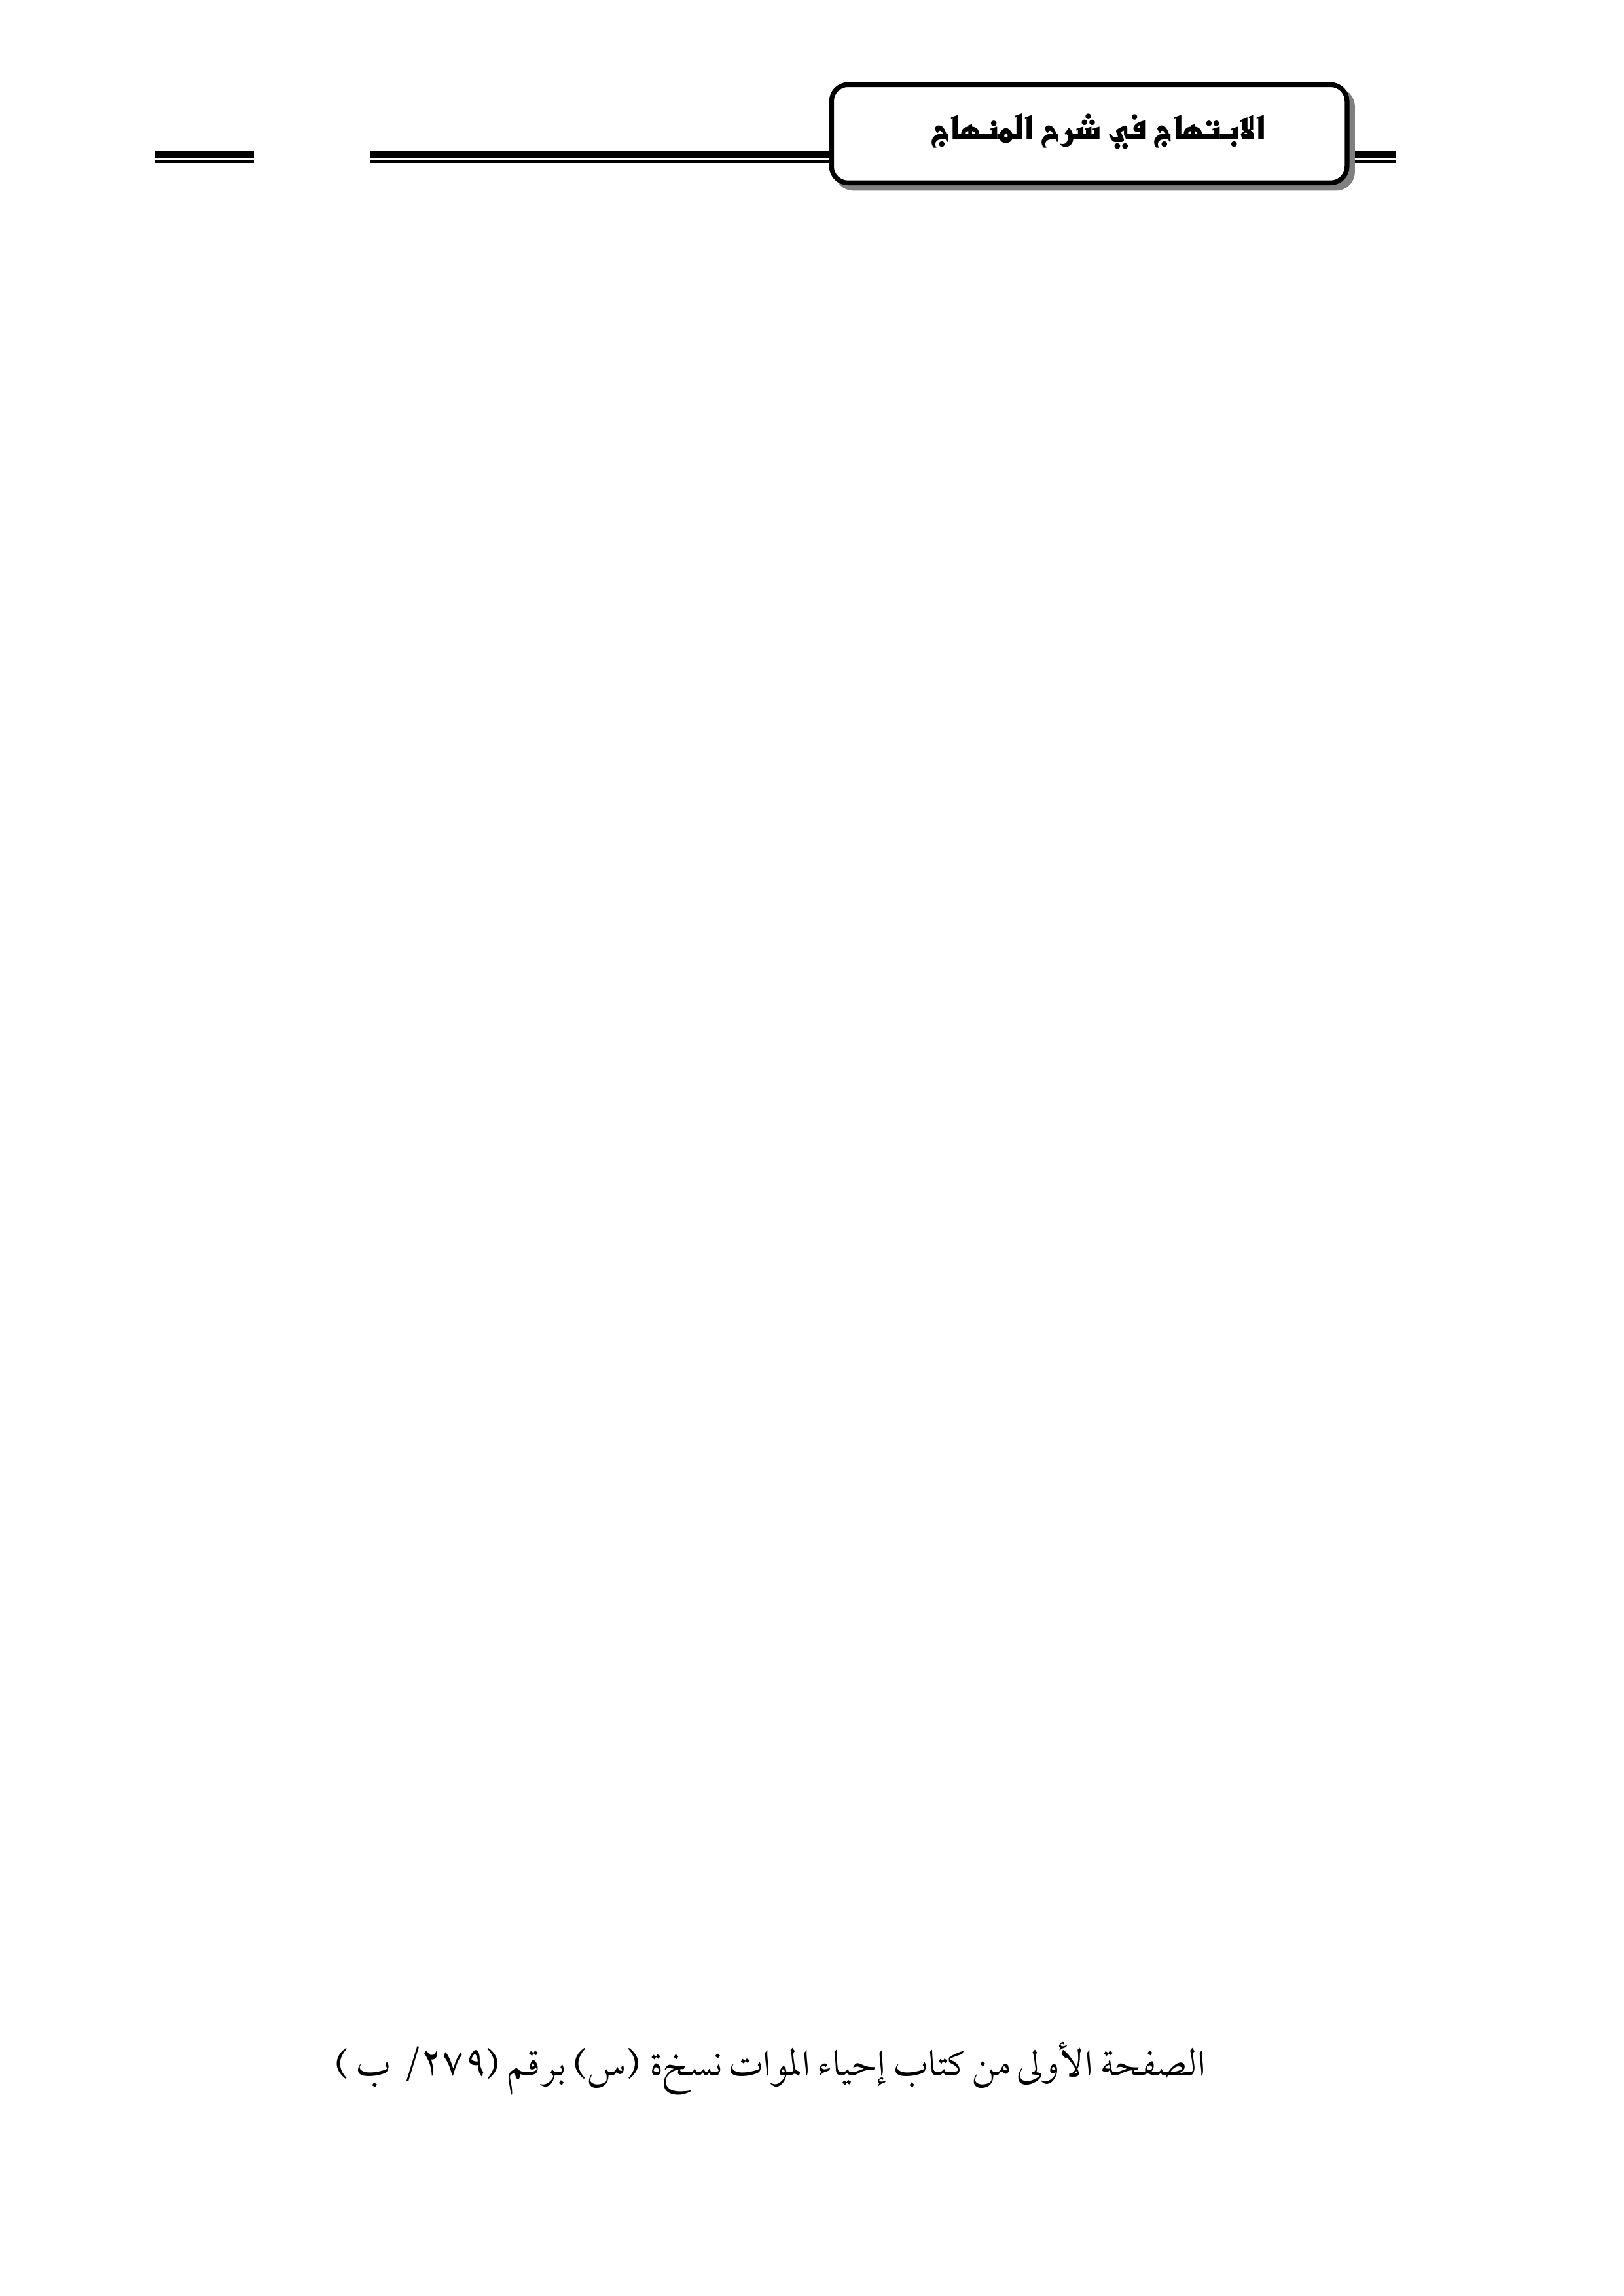 الابتهاج في شرح المنهاج
الصفحة الأولى من كتاب إحياء الموات نسخة (س) برقم (٢٧٩/ ب )